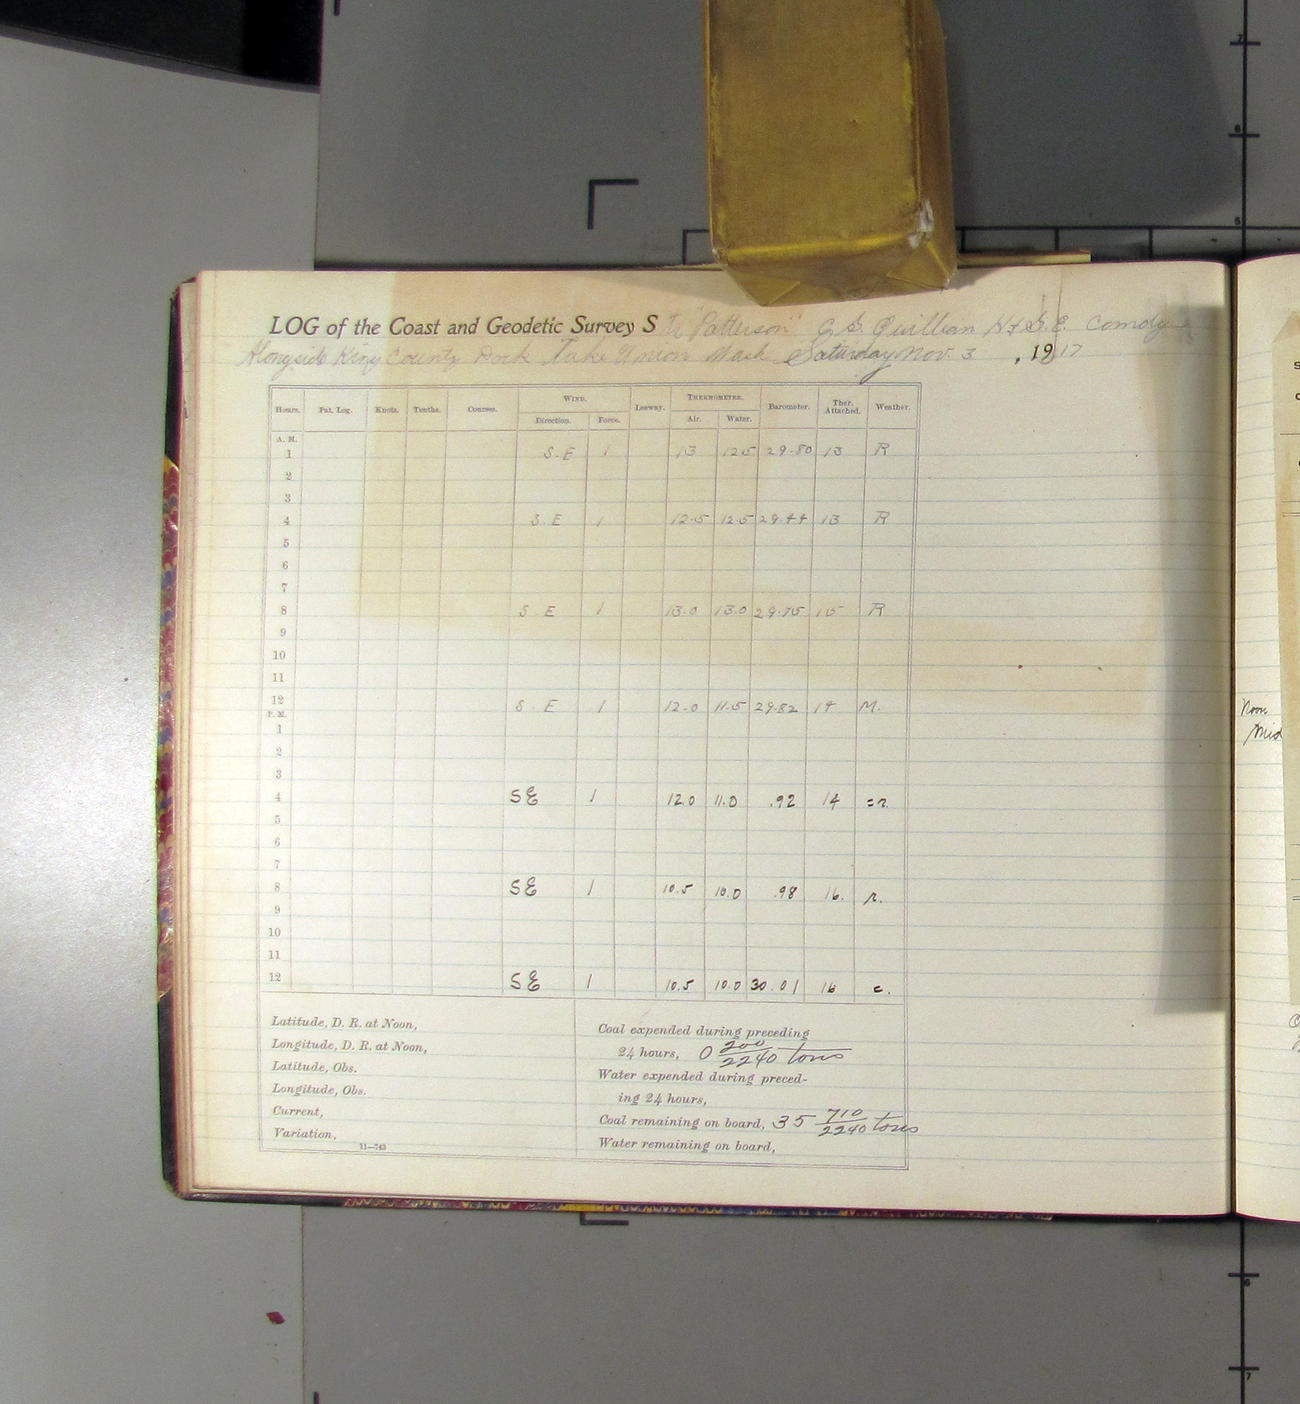 LOG of the Coast and Geodetic Survey S Tr "Patterson" C. G. Quillian H. & G. E. Comdg
Alongside King County Dock Lake Union Wash Saturday Nov. 3, 1917
WIND. THERMOMETER.
Hours. Pat. Log. Knots. Tenths. Courses. Direction. Force. Leeway. Air. Water. Barometer. Ther. Attached. Weather.
A. M.
1 S. E 1 13 12.5 29.80 13 R
2
3
4 S. E 1 12.5 12.5 29.44 13 R
5
6
7
8 S E 1 13.0 13.0 29.75 15 R
9
10
11
12 S. E 1 12.0 11.5 29.82 14 M.
P. M.
1
2
3
4 SE 1 12.0 11.0 .92 14
5
6
7
8 SE 1 10.5 10.0 .98 16. r.
9
10
11
12 SE 1 10.5 10.0 30.01 16 c.
Latitude, D. R. at Noon,
Longitude, D. R. at Noon,
Latitude, Obs.
Longitude, Obs.
Current,
Variation,
11—743
Coal expended during preceding
24 hours, 0 200/2240 tons
Water expended during preced-
ing 24 hours,
Coal remaining on board, 35 710/2240 tons
Water remaining on board,
Noon
Mid